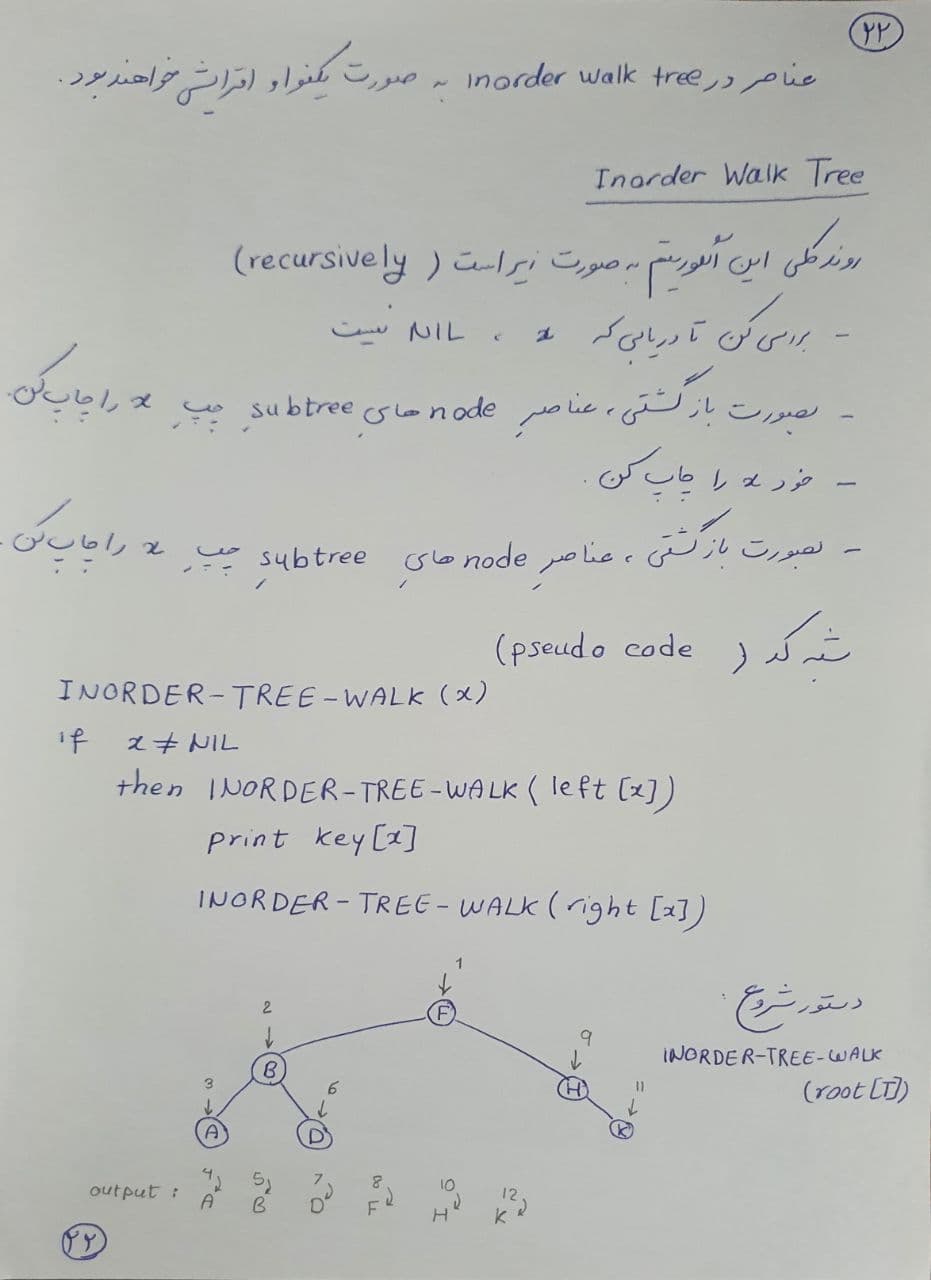 ۲۲
عناصر در inorder walk tree به صورت یکنوا و افزایشی خواهند بود.
Inorder Walk Tree
روند کلی این الگوریتم به صورت زیر است (recursively)
- بررسی کن تا دریابی که x ، NIL نیست
- بصورت بازگشتی، عناصرِ node هایِ subtree چپِ x را چاپ کن.
- خود x را چاپ کن.
- بصورت بازگشتی، عناصرِ node هایِ subtree چپِ x را چاپ کن.
شبه کد (pseudo code)
INORDER-TREE-WALK (x)
if x ≠ NIL
then INORDER-TREE-WALK (left [x])
print key[x]
INORDER-TREE-WALK (right [x])
1
F
2
B
9
H
3
A
6
D
11
K
دستور شروع:
INORDER-TREE-WALK
(root [T])
4 5 7 8 10 12
output: A B D F H K
۲۲